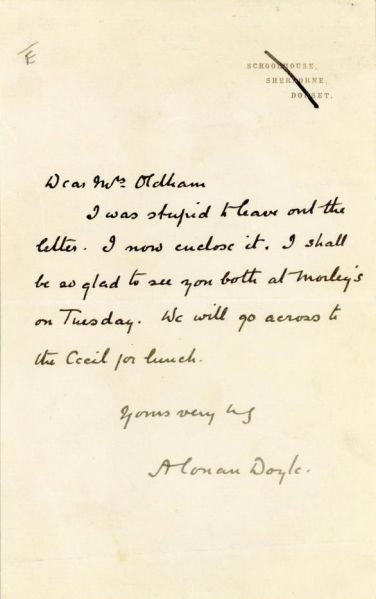 SCHOOLHOUSE,
SHERBORNE,
DORSET.
Dear Mrs. Oldham
I was stupid to leave out the
letter. I now enclose it. I shall
be so glad to see you both at Morley's
on Tuesday. We will go across to
the Cecil for lunch.
Yours very
A Conan Doyle.